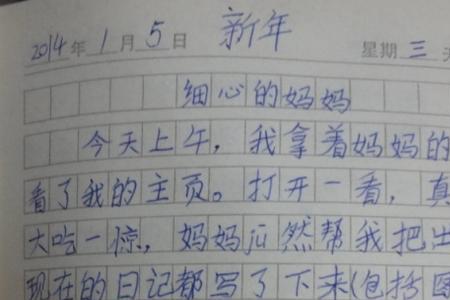 2014年1月5日 新年 星期三 天
细心的妈妈
今天上午，我拿着妈妈的
看了我的主页。打开一看，真
大吃一惊，妈妈jū然帮我把出
现在的日记都写了下来(包括图